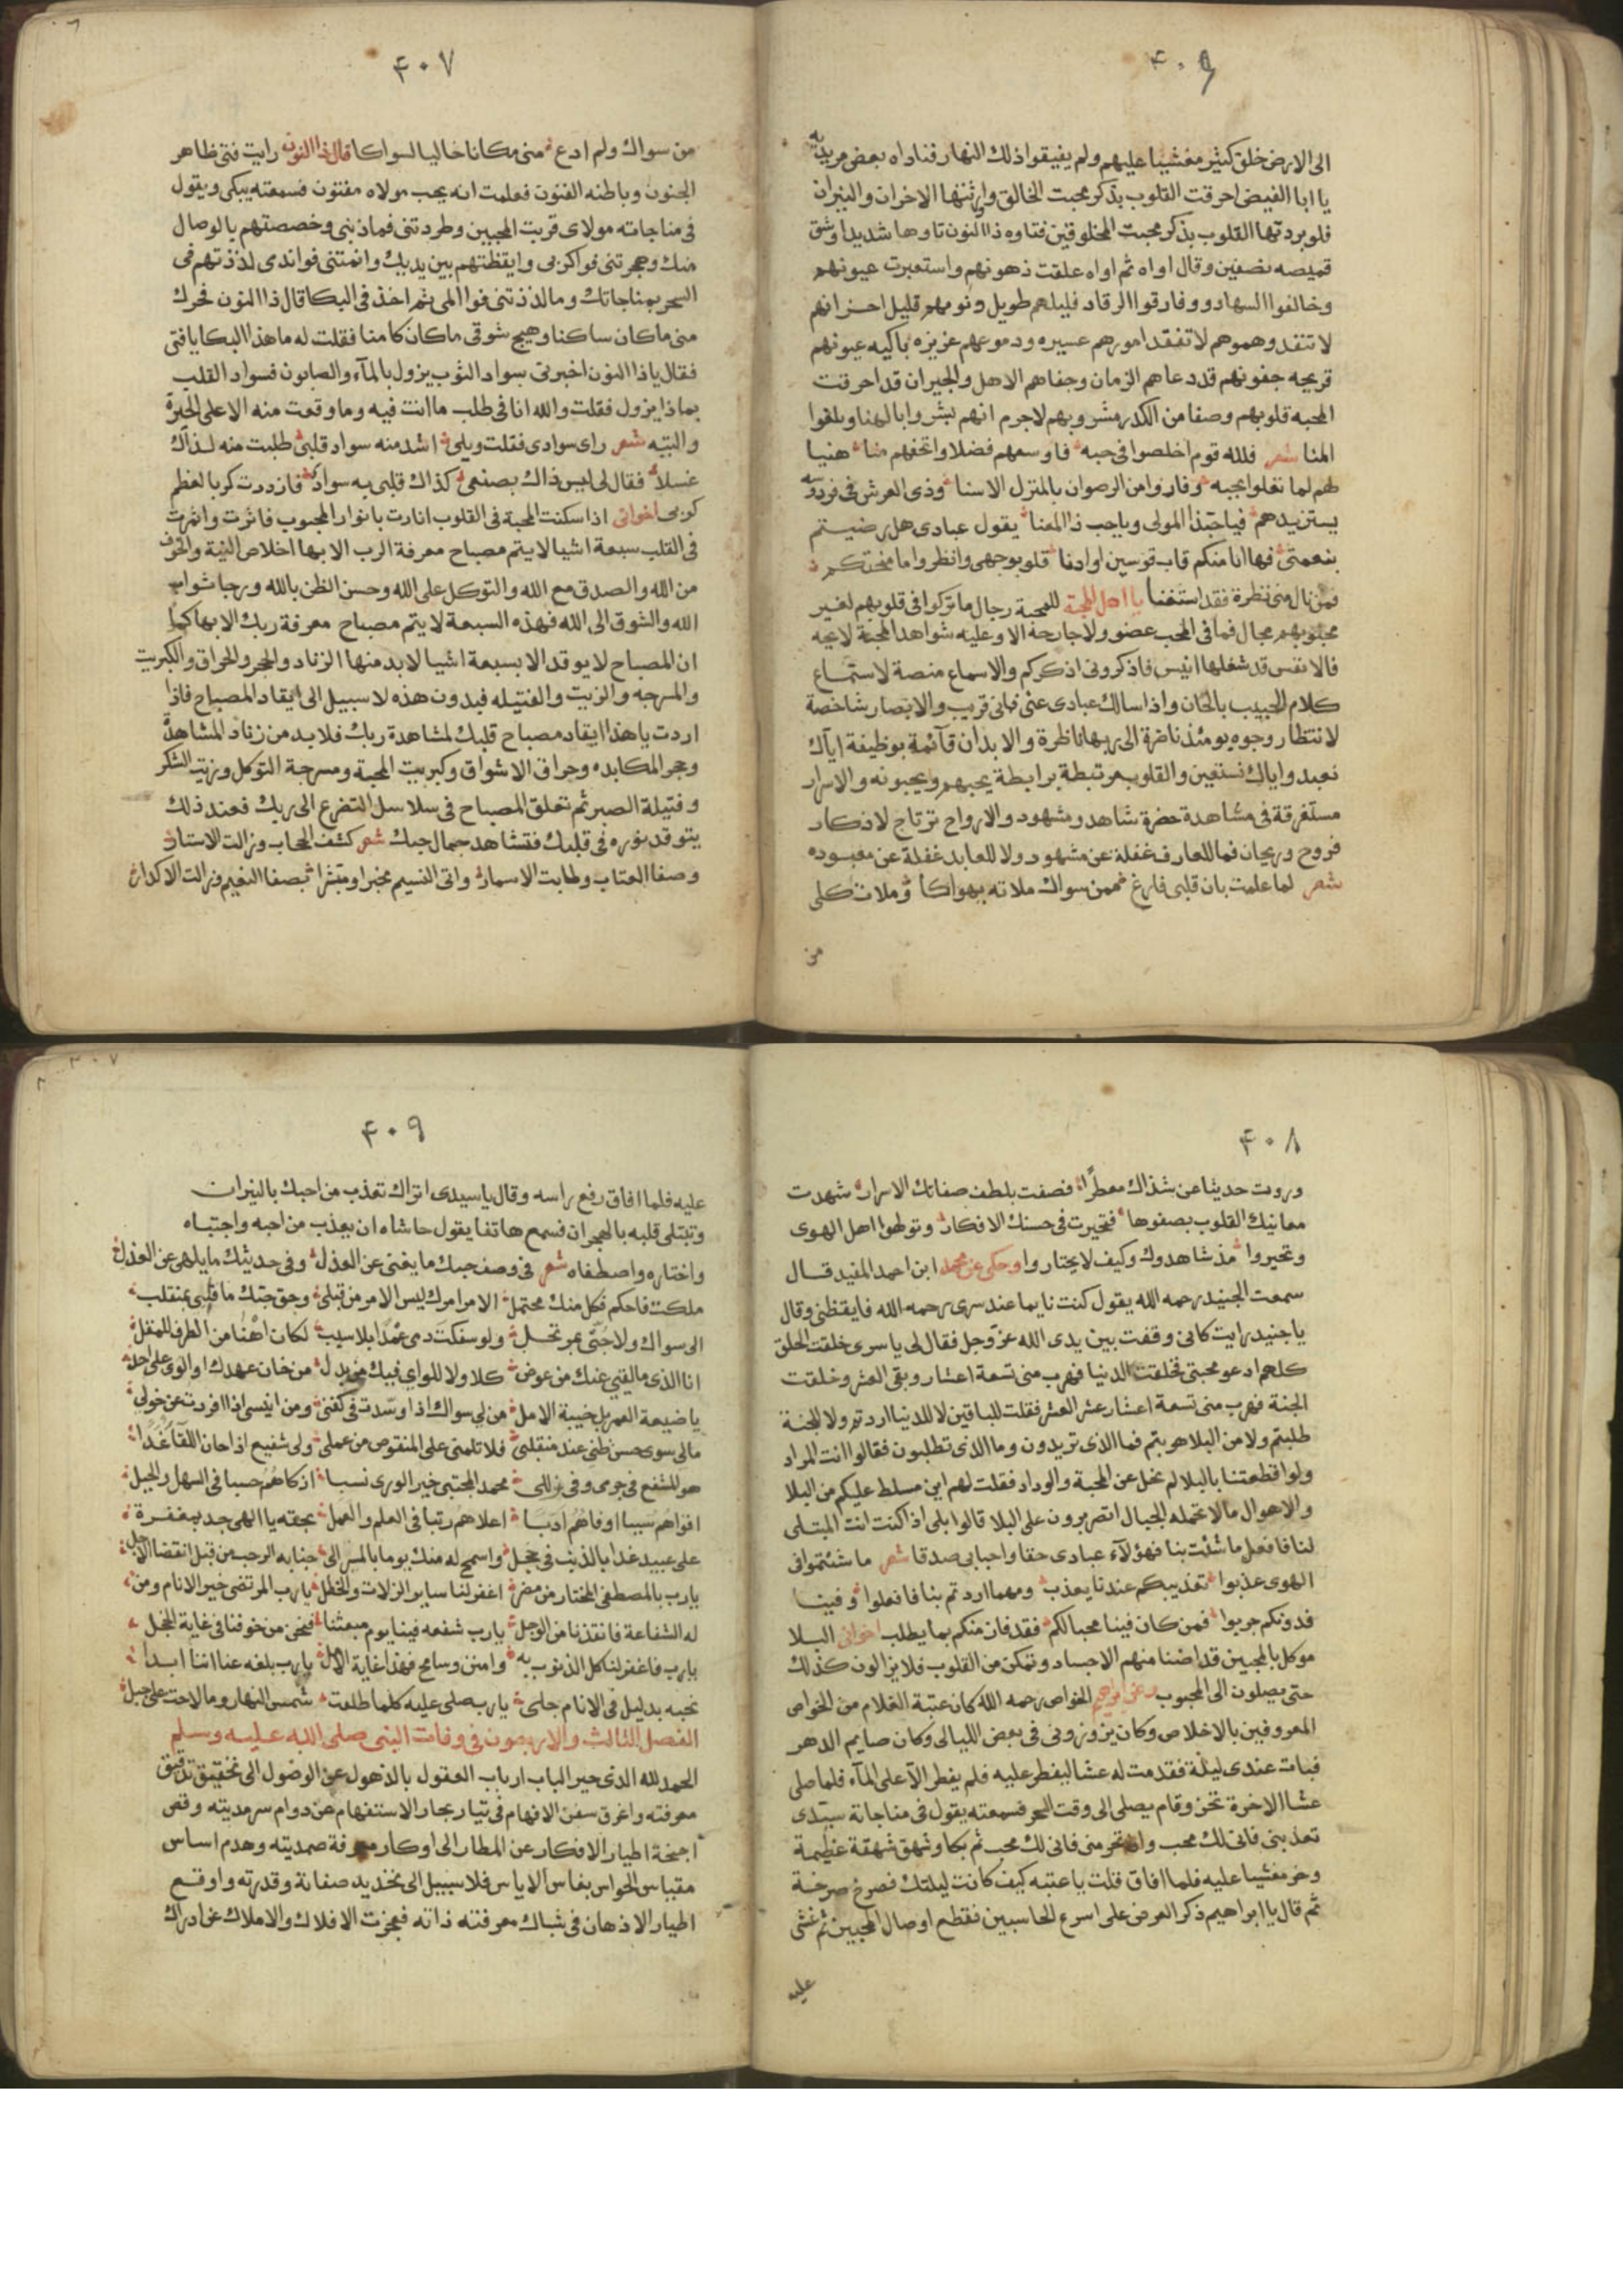 ٤٠٦
الى الارض خلق كثير مغشيا عليهم ولم يفيقوا ذلك النهار فناداه بعض مريديه
يا ابا الفيض احرقت القلوب بذكر محبت الخالق واورثتها الاحزان والنيران
فلو بردتها القلوب بذكر محبت المخلوقين فتاوه ذا النون تاوها شديدا وشق
قميصه نصفين وقال اواه ثم اواه علقت ذهونهم واستعبرت عيونهم
وخالفوا السهاد وفارقوا الرقاد فليلهم طويل ونومهم قليل احزانهم
لا تنفد وهمومهم لا تفقد امورهم عسيره ودموعهم غزيزه باكيه عيونهم
قريحه جفونهم قد دعاهم الزمان وجفاهم الاهل والجيران قد احرقت
المحبه قلوبهم وصفا من الكدر مشروبهم لاجرم انهم بشروا بالهنا وبلغوا
المنا شعر فلله قوم اخلصوا فى حبه فاوسعهم فضلا واتحفهم منا هنيا
لهم لما تغلوا بحبه وفازوا من الرضوان بالمنزل الاسنا وذى العرش فى فردوسه
يستزيدهم فيا حبذا المولى وياحب ذا المعنا يقول عبادى هل رضيتم
بنعمتى فها انا منكم قاب قوسين او ادنا قلو بوجهى وانظروا ما منحتكم
فمن نال منى نظرة فقد استغنا يا اهل المحبة للمحبة رجال ما تركوا فى قلوبهم لغير
محبوبهم مجال فما فى المحب عضو ولا جارحة الا وعليه شواهد المحبة لايحه
فالانفس قد شغلها انيس فاذكرونى اذكركم والاسماع منصة لاستماع
كلام الحبيب بالحان واذا سالك عبادى عنى فانى قريب والابصار شاخصة
لانتظار وجوه يومئذ ناضرة الى ربها ناظرة والابدان قآئمة بوظيفة اياك
نعبد واياك نستعين والقلوب مرتبطة برابطة يحبهم ويحبونه والاسرار
مستغرقة فى مشاهدة حضرة شاهد ومشهود والارواح ترتاح لاذكار
فروح وريحان فما للعارف غفلة عن مشهود ولا للعابد غفلة عن معبوده
شعر لما علمت بان قلبى فارغ ممن سواك ملاته بهواكا وملات كلى
من
٤٠٧
من سواك ولم ادع منى مكانا خاليا لسواكا قال ذا النون رايت فتى ظاهر
الجنون وباطنه الفنون فعلمت انه يحب مولاه مفتون فسمعته يبكى ويقول
فى مناجاته مولاى قربت المحبين وطردتنى فما ذنبى وخصصتهم بالوصال
منك وهجرتنى فواكربى وايقظتهم بين يديك وانمتنى فواندى لذذتهم فى
السحر بمناجاتك وما لذذتنى فوا المى ثم اخذ فى البكا قال ذا النون فحرك
منى ماكان ساكنا وهيج شوقى ماكان كامنا فقلت له ما هذا البكا يا فتى
فقال يا ذا النون اخبرنى سواد الثوب يزول بالمآء والصابون فسواد القلب
بماذا يزول فقلت والله انا فى طلب ما انت فيه وما وقعت منه الا على الحيرة
والتيه شعر راى سوادى فقلت ويلى اشد منه سواد قلبى طلبت منه لذاك
غسلا فقال لى ليس ذاك بصنعى كذاك قلبى به سواد فازددت كربا لعظم
كربى اخوانى اذا سكنت المحبة فى القلوب انارت بانوار المحبوب فاثرت واثمرت
فى القلب سبعة اشيا لا يتم مصباح معرفة الرب الا بها اخلاص النية والخوف
من الله والصدق مع الله والتوكل على الله وحسن الظن بالله ورجا ثواب
الله والشوق الى الله فهذه السبعة لا يتم مصباح معرفة ربك الا بها كما
ان المصباح لا يوقد الا بسبعة اشيا لابد منها الزناد والحجر والحراق والكبريت
والمسرجه والزيت والفتيله فبدون هذه لا سبيل الى ايقاد المصباح فاذا
اردت يا هذا ايقاد مصباح قلبك لمشاهدة ربك فلابد من زناد المشاهدة
وحجر المكابده وحراق الاشواق وكبريت المحبة ومسرجة التوكل وزيت الشكر
وفتيلة الصبر ثم تعلق المصباح فى سلاسل التضرع الى ربك فعند ذلك
يتوقد نوره فى قلبك فتشاهد جمال حبك شعر كشف الحجاب وزالت الاستار
وصفا العتاب وطابت الاسمار واتى النسيم مخبرا ومبشرا بصفا النعيم وزالت الاكدار
٤٠٨
وروت حديثا عن شذاك معطرا فصفت بلطف صفاتك الاسرار شهدت
معانيك القلوب بصفوها فتحيرت فى حسنك الافكار وتولهوا اهل الهوى
وتحيروا مذ شاهدوك وكيف لا يحتاروا وحكى عن محمد ابن احمد المفيد قال
سمعت الجنيد رحمه الله يقول كنت نايما عند سرى رحمه الله فايقظنى وقال
يا جنيد رايت كانى وقفت بين يدى الله عز وجل فقال لى يا سرى خلقت الخلق
كلهم ادعو محبتى فخلقت الدنيا فهرب منى تسعة اعشار وبقى العشر وخلقت
الجنة فهرب منى تسعة اعشار عشر العشر فقلت للباقين لا للدنيا اردتم ولا للجنة
طلبتم ولا من البلا هربتم فما الذى تريدون وما الذى تطلبون فقالوا انت المراد
ولو قطعتنا بالبلا لم نخل عن المحبة والوداد فقلت لهم اين مسلط عليكم من البلا
والاهوال مالا تحمله الجبال اتصبرون على البلا قالوا بلى اذا كنت انت المبتلى
لنا فافعل ما شئت بنا فهؤلآء عبادى حقا واحبابى صدقا شعر ما شئتموا فى
الهوى عذبوا تعذيبكم عندنا يعذب ومهما اردتم بنا فافعلوا وفينا
فدونكم جربوا فمن كان فينا محبا لكم فقد فاز منكم بما يطلب اخوانى البلا
موكل بالمحبين قد اضنا منهم الاجساد وتمكن من القلوب فلا يزالون كذلك
حتى يصلون الى المحبوب وعن ابراهيم الخواص رحمه الله كان عتبة الغلام من الخواص
المعروفين بالاخلاص وكان يزورنى فى بعض الليالى وكان صايم الدهر
فبات عندى ليلة فقدمت له عشا ليفطر عليه فلم يفطر الا على المآء فلما صلى
عشا الاخرة نحن وقام يصلى الى وقت السحر فسمعته يقول فى مناجاته سيدى
تعذبنى فانى لك محب وان ترحمنى فانى لك محب ثم بكا وشهق شهقة عظيمة
وخر مغشيا عليه فلما افاق قلت يا عتبه كيف كانت ليلتك فصرخ صرخة
ثم قال يا ابراهيم ذكر العرض على اسرع الحاسبين قطع اوصال المحبين ثم غشى
عليه
٤٠٩
عليه فلما افاق رفع راسه وقال يا سيدى اتراك تعذب من احبك بالنيران
وتبتلى قلبه بالهجران فسمع هاتفا يقول حاشاه ان يعذب من احبه واجتباه
واختاره واصطفاه شعر فى وصف حبك ما يغنى عن الغزل وفى حديثك ما يلهى عن العذل
ملكت فاحكم فكل منك محتمل الامر امرك ليس الامر من قبلى وحق حبك ما قلبى بمنقلب
الى سواك ولا حبى بمرتحل ولو سفكت دمى عمدا بلا سبب لكان اهنا من الطرف للمقل
انا الذى مالقيى عنك من عوض كلا ولا للواى فيك من بدل من خان عهدك او الوى على احد
يا ضيعة العمر بل خيبة الامل من لى سواك اذا وسدت فى كفنى ومن انيسى اذا افردت عن خولى
مالى سوى حسن ظنى عند منقلبى فلا تلمنى على المنقوص من عملى ولى شفيع اذا حان اللقا غدا
هو المشفع فى جرمى وفى زللى محمد المجتبى خير الورى نسبا ازكاهم حسبا فى السهل والجبل
اقواهم سببا اوفاهم ادبا اعلاهم رتبا فى العلم والعمل بحقه يا الهى جد بمغفرة
على عبيد غدا بالذنب فى خجل واسمح له منك يوما بالمسر الى جنابه الرحب من قبل انقضا الاجل
يا رب بالمصطفى المختار من مضر اغفر لنا ساير الزلات والخطل يا رب المرتضى خير الانام ومن
له الشفاعة فانقذنا من الوجل يا رب شفعه فينا يوم مبعثنا فنحن من خوفنا فى غاية الخجل
يا رب فاغفر لنا كل الذنوب به وامنن وسامح فهذا غاية الامل يا رب بلغه عنا اننا ابدا
نحبه بدليل فى الانام جلى يا رب صلى عليه كلما طلعت شمس النهار وما لاحت على جبل
الفصل الثالث والاربعون فى وفات النبى صلى الله عليه وسلم
الحمد لله الذى حير الباب ارباب العقول بالذهول عن الوصول الى تحقيق تدقيق
معرفته واغرق سفن الافهام فى تيار بحار الاستفهام عن دوام سرمديته وقص
اجنحة اطيار الافكار عن المطار الى اوكار معرفة صمديته وهدم اساس
مقياس الحواس بفاس الاياس فلا سبيل الى تحديد صفاته وقدرته واوقع
اطيار الاذهان فى شباك معرفته ذاته فعجزت الافلاك والاملاك عن ادراك